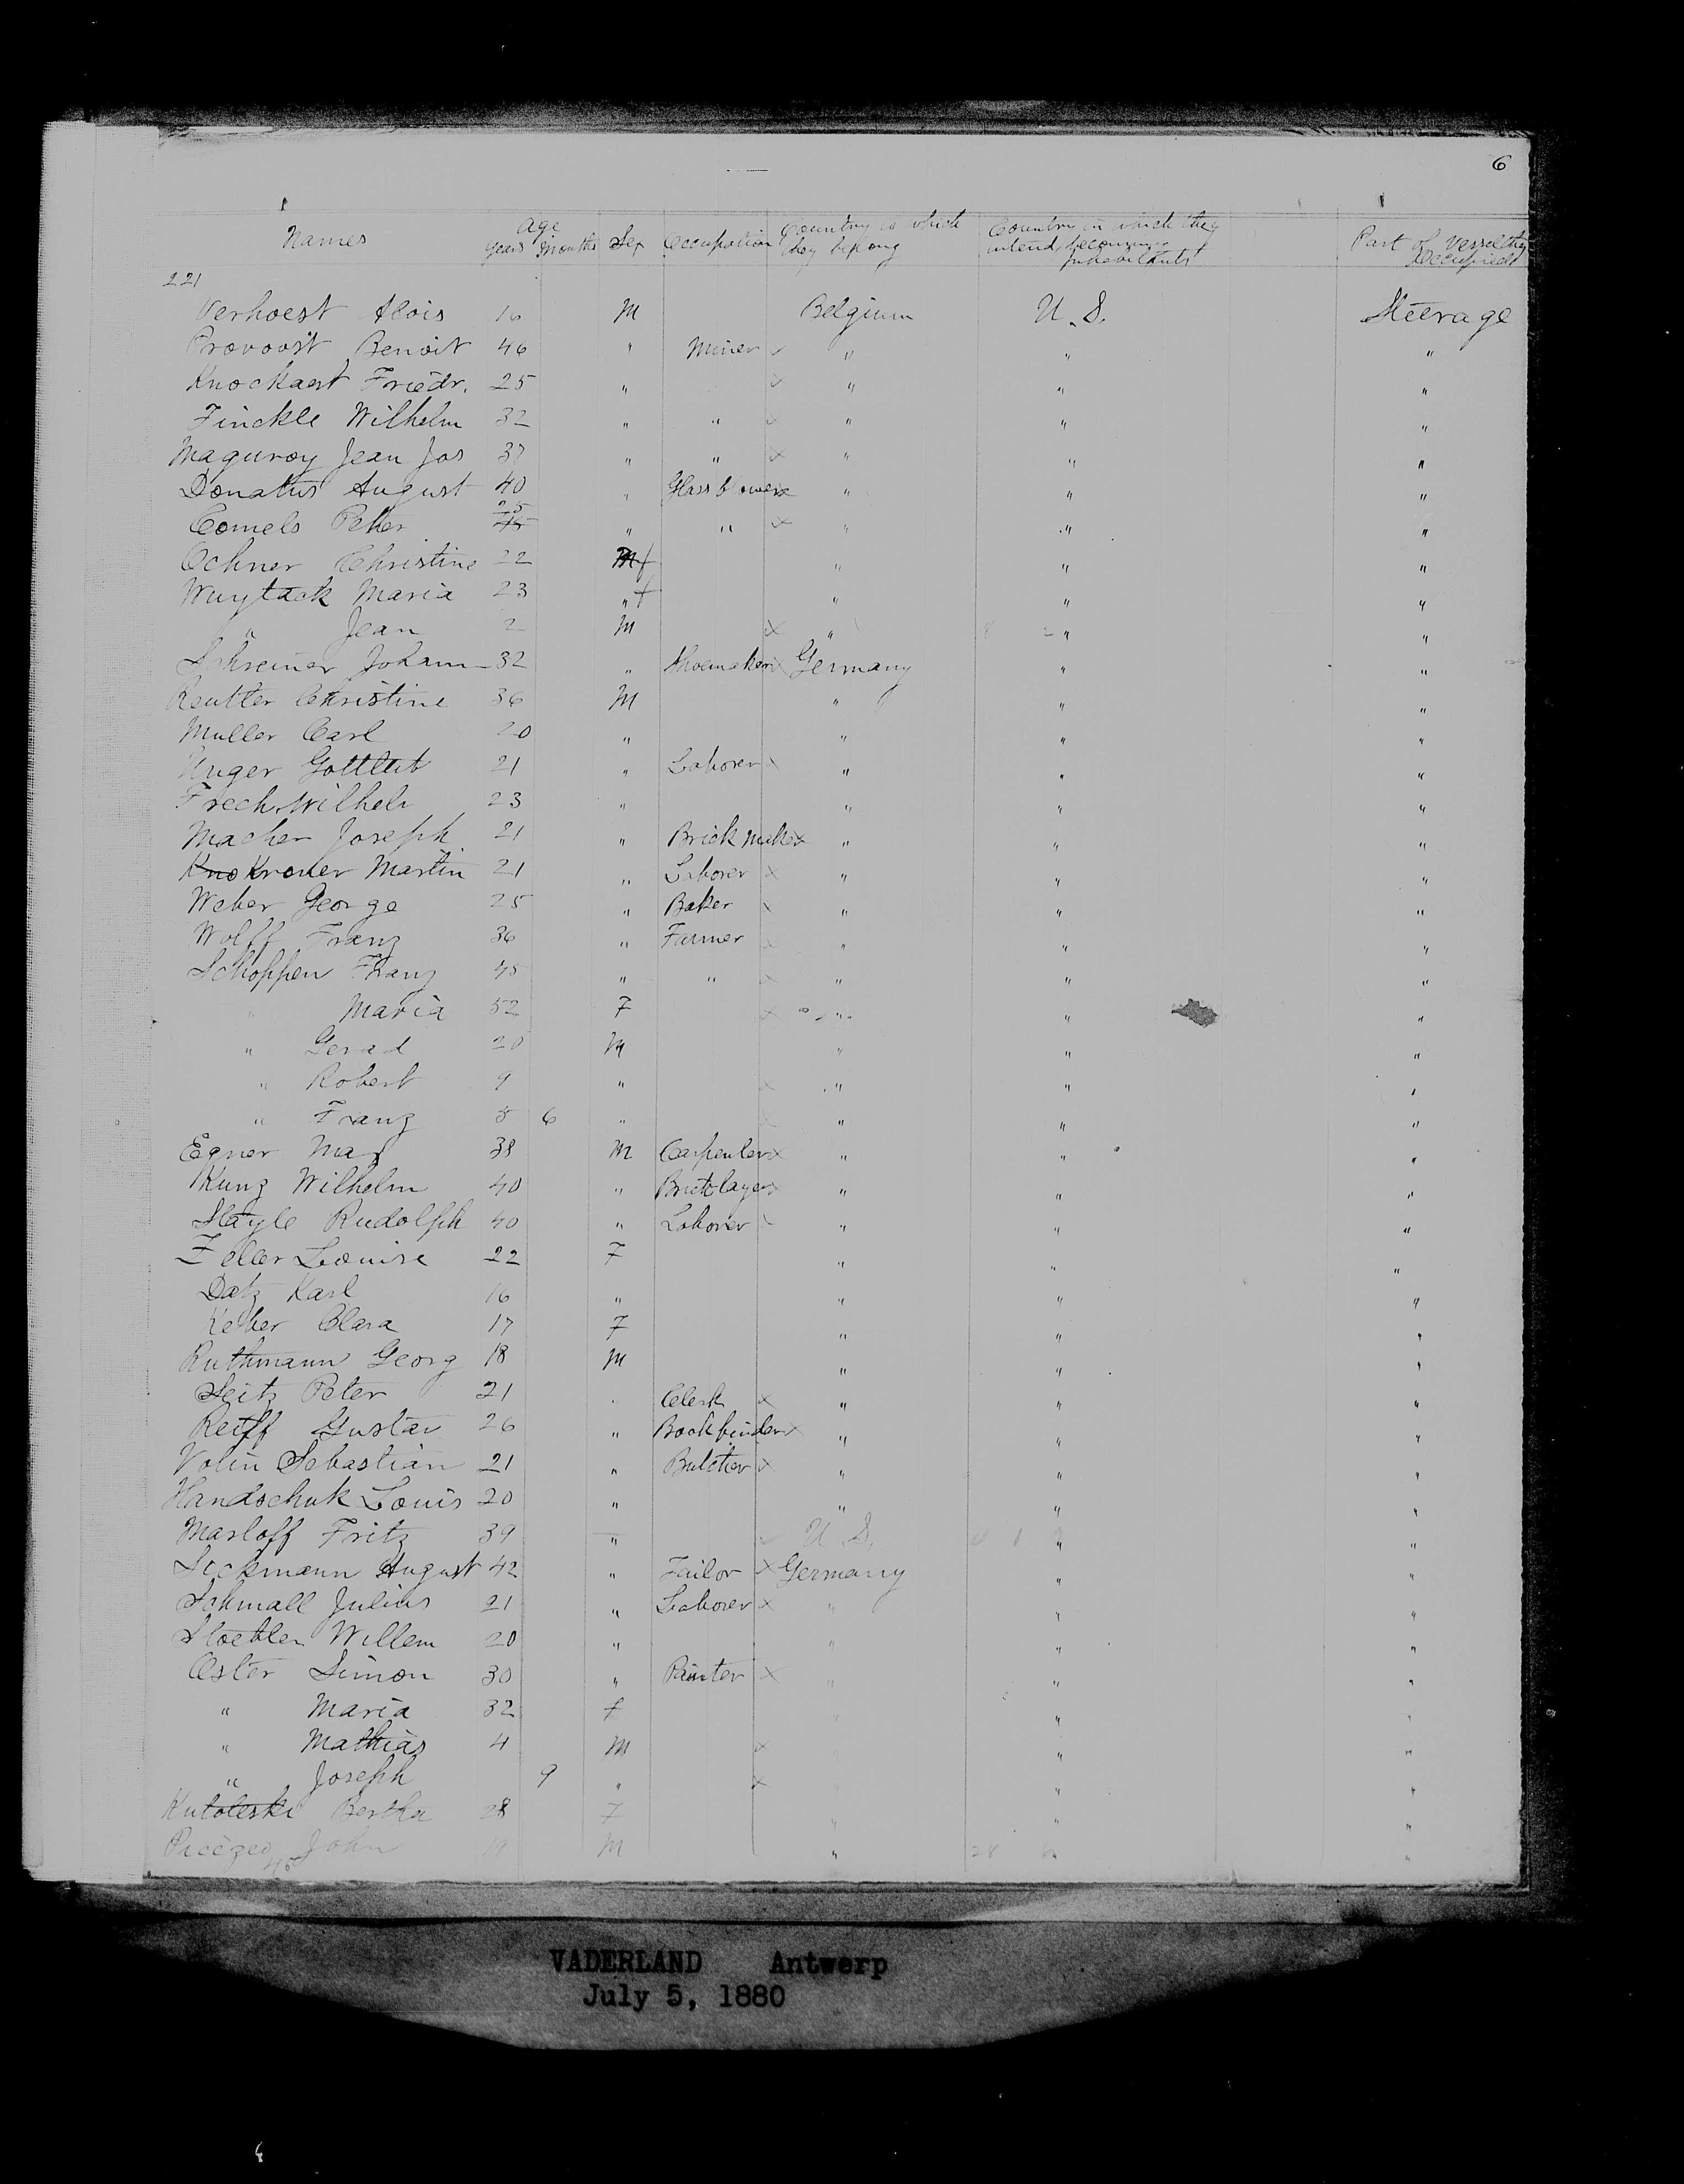 6
Names Age Years Months Sex Occupation Country to which they belong Country in which they intend becoming inhabitants Part of vessel they occupied
221
Verhoest Alois 16 M Belgium U.S. Steerage
Provoost Benoit 46 " Miner " " "
Knockaert Friedr. 25 " " " "
Finckle Wilhelm 32 " " " " "
Maguroy Jean Jos 37 " " " " "
Donatus August 40 " Glass blower " " "
Comels Peter 25 " " " " "
Ochner Christine 22 f " " "
Wuytack Maria 23 " f " " "
" Jean 2 M " " "
Schreiner Johann 32 " Shoemaker Germany " "
Reutter Christine 36 M " " "
Muller Carl 20 " " " "
Unger Gottlieb 21 " Laborer " " "
Frech Wilhelm 23 " " " "
Macher Joseph 21 " Brick maker " " "
Kno Kroner Martin 21 " Laborer " " "
Weber George 25 " Baker " " "
Wolff Franz 36 " Farmer " " "
Schoppen Franz 45 " " " " "
" Maria 52 F " " "
" Gerad 20 M " " "
" Robert 9 " " " "
" Franz 5 6 " " " "
Egner Max 38 M Carpenter " " "
Kunz Wilhelm 40 " Bricklayer " " "
Stayle Rudolph 40 " Laborer " " "
Zeller Louise 22 F " " "
Datz Karl 16 " " " "
Keber Clara 17 F " " "
Ruthmann Georg 18 M " " "
Seitz Peter 21 " Clerk " " "
Reiff Gustav 26 " Bookbinder " " "
Volin Sebastian 21 " Butcher " " "
Handschuk Louis 20 " " " "
Marloff Fritz 39 " U.S. " "
Sickmann August 42 " Tailor Germany " "
Schmall Julius 21 " Laborer " " "
Willem 20 " " " "
Oster Simon 30 " Painter " " "
" Maria 32 f " " "
" Mathias 4 M " "
" Joseph 9 " " "
Kutoleski Bertha 28 F " " "
John 19 M " "
VADERLAND Antwerp
July 5, 1880